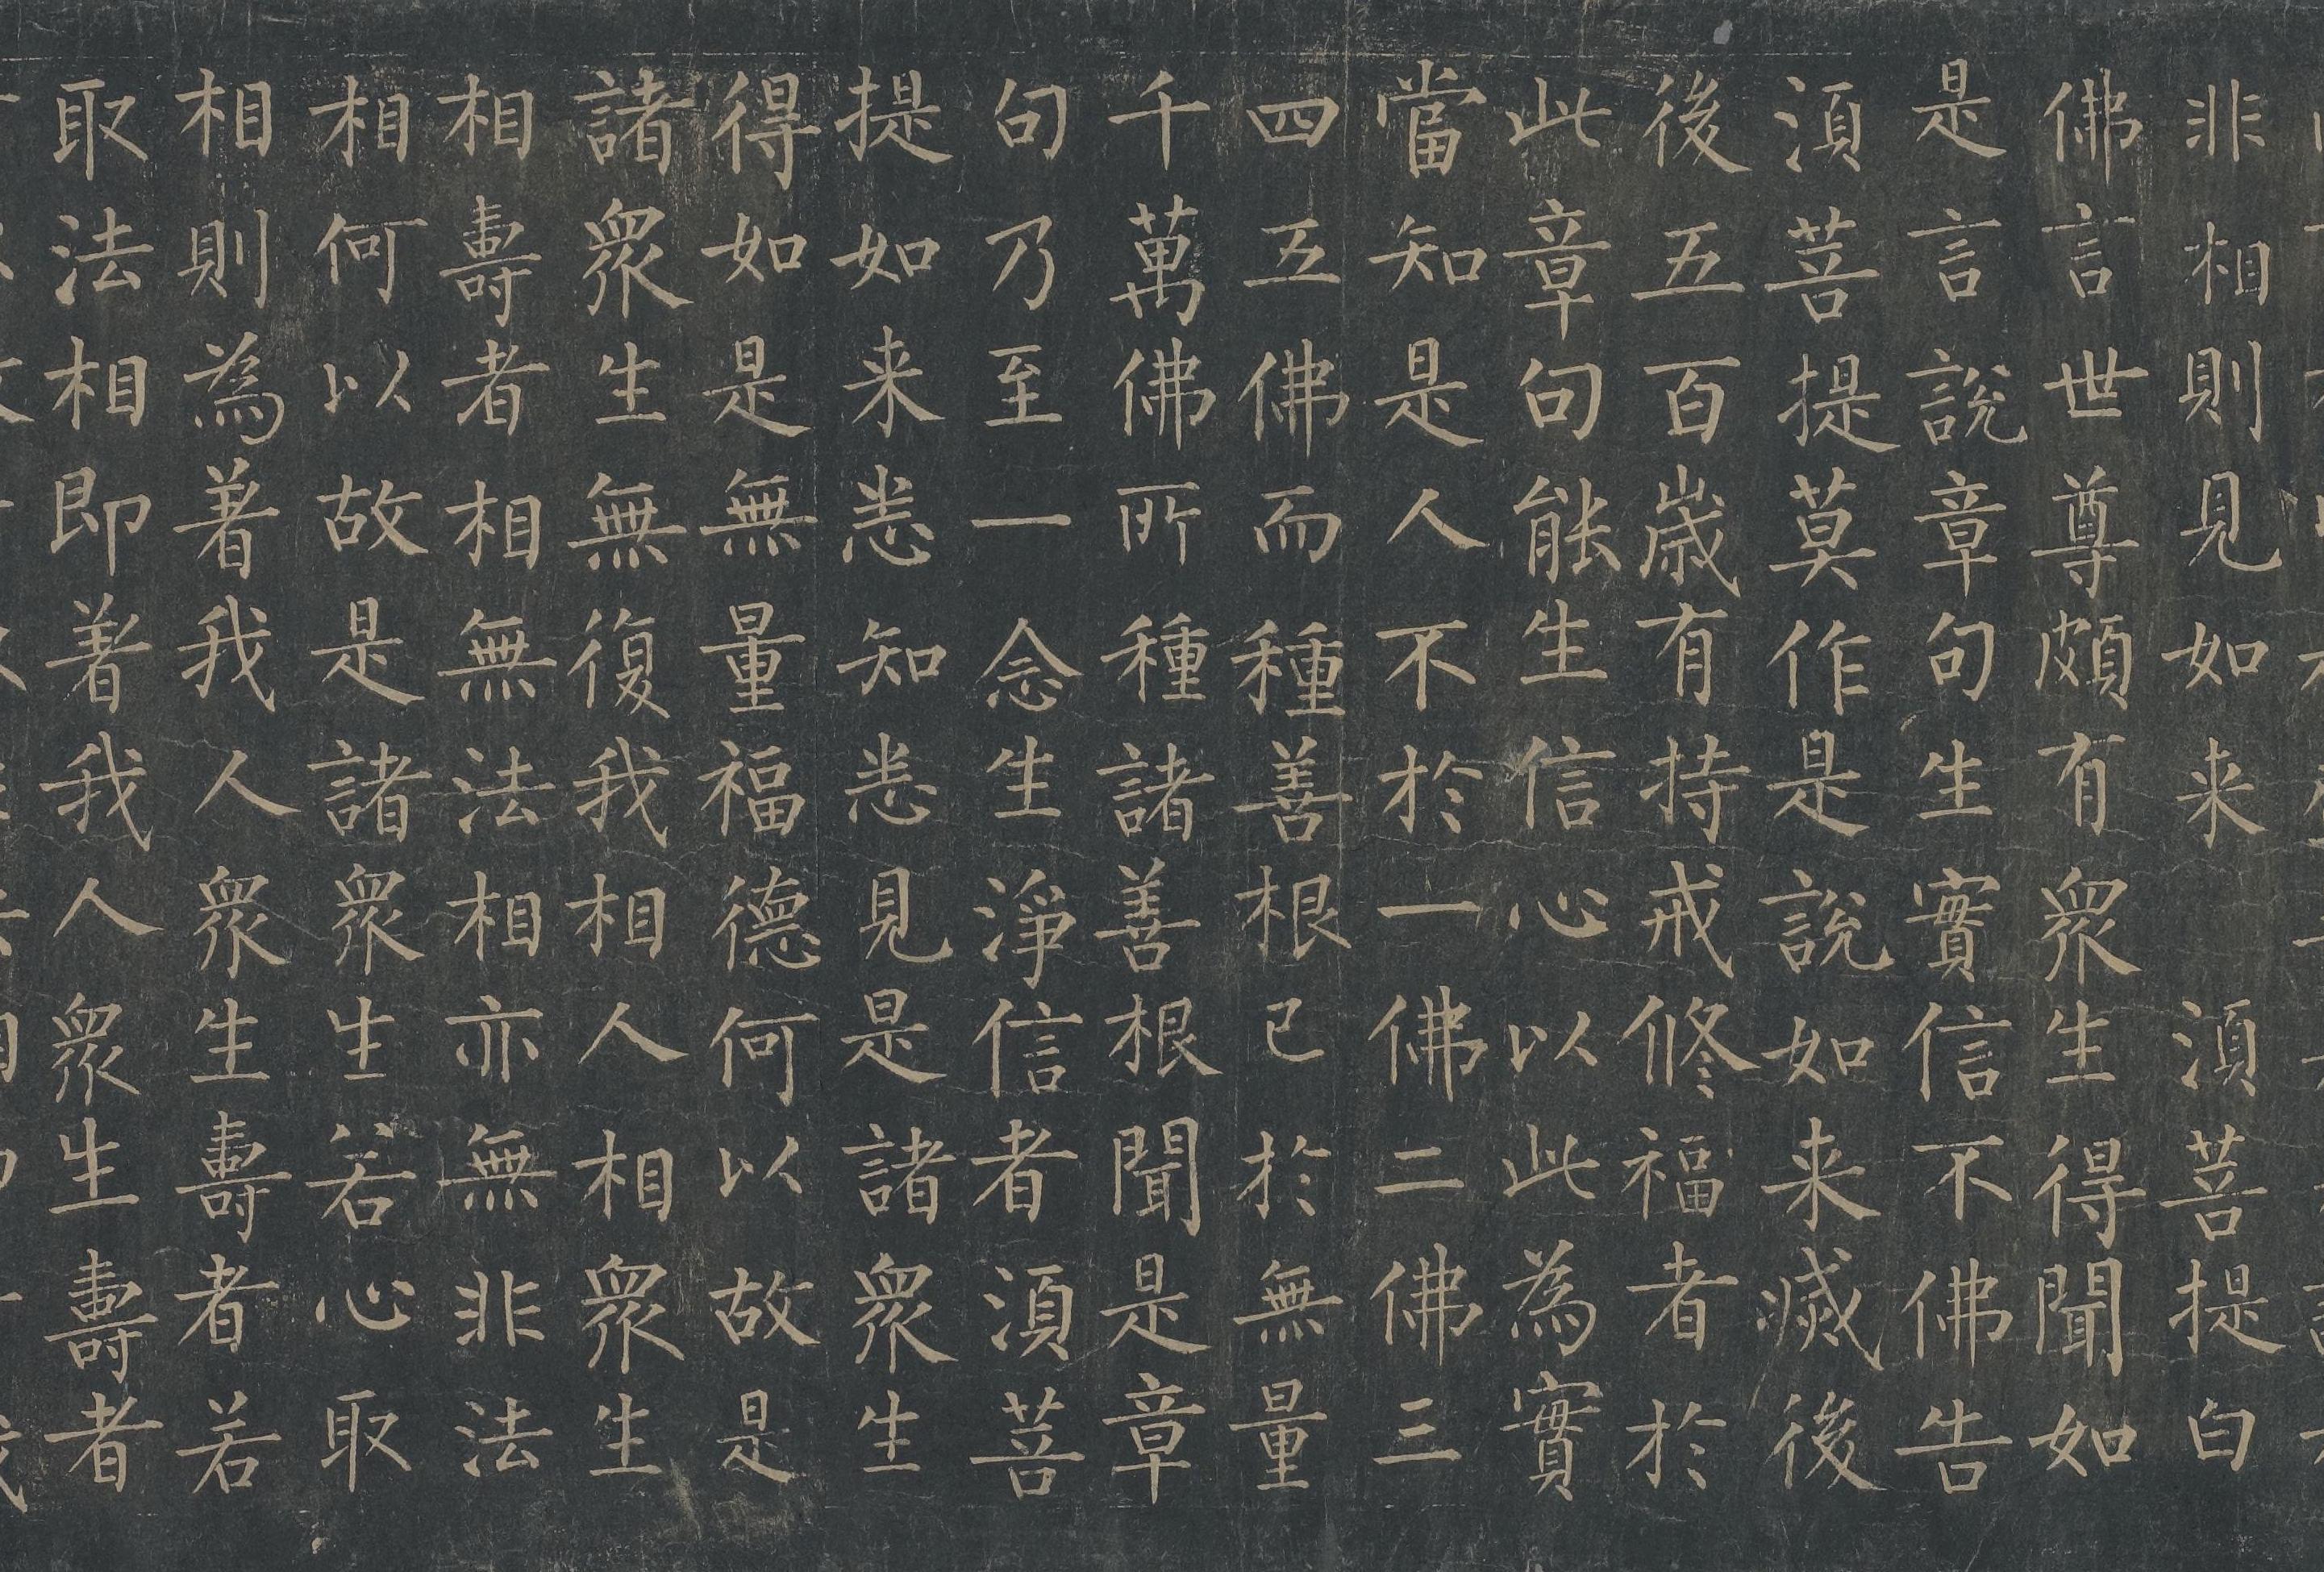 非相則見如来須菩提白
佛言世尊頗有眾生得聞如
是言說章句生實信不佛告
須菩提莫作是說如来滅後
後五百歲有持戒修福者於
此章句能生信心以此為實
當知是人不於一佛二佛三
四五佛而種善根已於無量
千萬佛所種諸善根聞是章
句乃至一念生淨信者須菩
提如来悉知悉見是諸眾生
得如是無量福德何以故是
諸眾生無復我相人相眾生
相壽者相無法相亦無非法
相何以故是諸眾生若心取
相則為著我人眾生壽者若
取法相即著我人眾生壽者